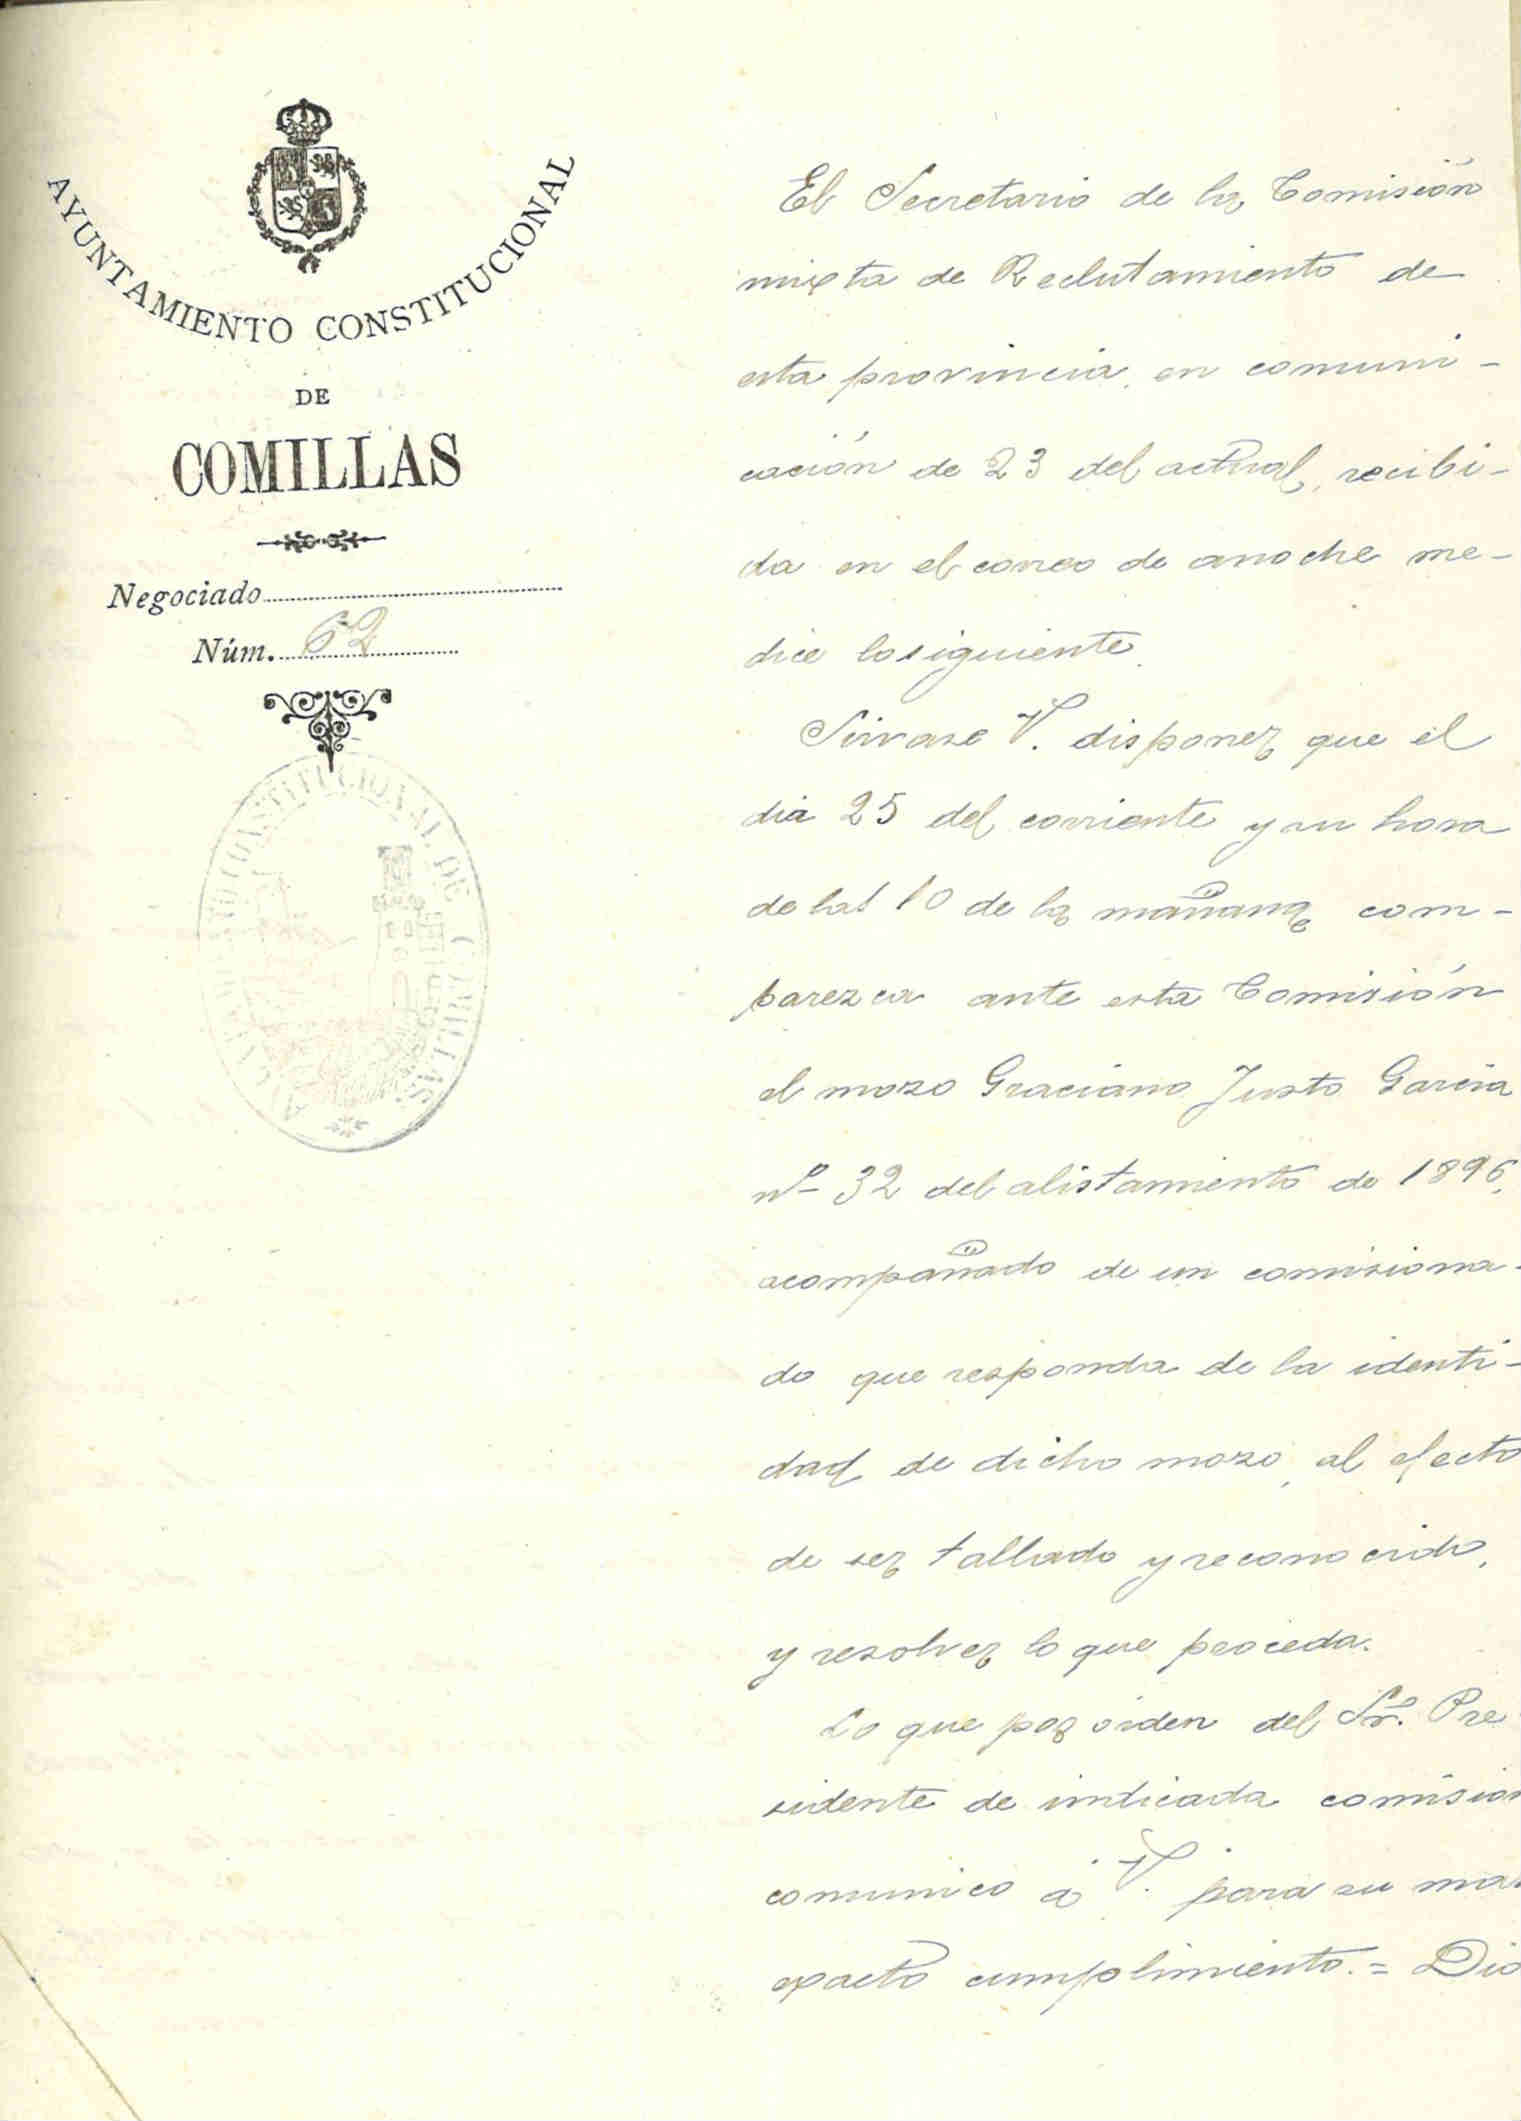 AYUNTAMIENTO CONSTITUCIONAL
DE
COMILLAS
Negociado
Núm. 62
AYUNTAMIENTO CONSTITUCIONAL DE COMILLAS
El Secretario de la Comisión
mixta de Reclutamiento de
esta provincia, en comuni-
cación de 23 del actual, recibi-
da en el correo de anoche me-
dice lo siguiente.
Sirvase V. disponer que el
dia 25 del corriente y su hora
de las 10 de la mañana com-
parezca ante esta Comisión
el mozo Graciano Justo Garcia
nº 32 del alistamiento de 1896,
acompañado de un comisiona-
do que responda de la identi-
dad de dicho mozo, al efecto
de ser tallado y reconocido,
y resolver lo que proceda.
Lo que por orden del Sr. Pre
sidente de indicada comision
comunico á V. para su mas
exacto cumplimiento. = Dio